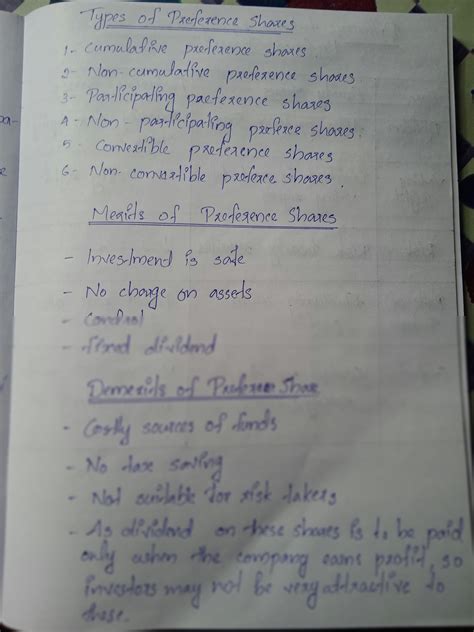 Types of Preference Shares
1- Cumulative preference shares
2- Non-cumulative preference shares
3- Participating preference shares
4- Non-participating preferce shares.
5 Convertible preference shares
6- Non-convertible preferce shares.
Merits of Preference Shares
- Investmend is safe
- No charge on assets
- Control
- fixed dividend
Demerits of Preferce Share
- Costly sources of funds
- No tax saving
- Not suitable for risk takers
- As dividend on these shares is to be paid
only when the company earns profit, so
investors may not be very attractive to
these.